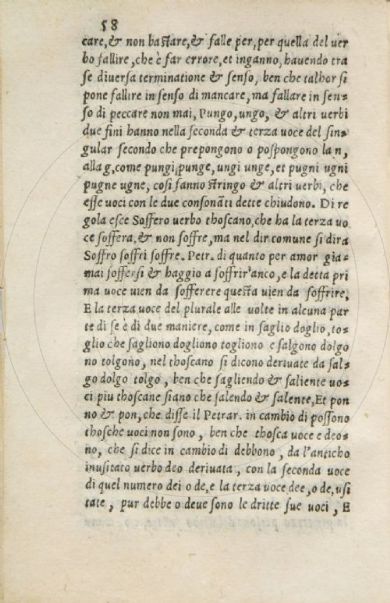 58
care, & non bastare, & falle per, per quella del uer
bo fallire, che è far errore, et inganno, hauendo tra
se diuersa terminatione & senso, ben che talhor si
pone fallire in senso di mancare, ma fallare in sen-
so di peccare non mai, Pungo, ungo, & altri uerbi
due fini hanno nella seconda & terza uoce del sin-
gular secondo che prepongono o pospongono la n,
alla g, come pungi punge, ungi unge, et pugni ugni
pugne ugne, cosi fanno stringo & altri uerbi, che
esse uoci con le due consonãti dette chiudono. Di re
gola esce Soffero uerbo thoscano, che ha la terza uo
ce soffera, & non soffre, ma nel dir comune si dira
Soffro soffri soffre. Petr. di quanto per amor gia-
mai soffersi & haggio a soffrir'anco, e la detta pri
ma uoce uien da sofferere questa uien da soffrire,
E la terza uoce del plurale alle uolte in alcuna par
te di se è di due maniere, come in saglio doglio, to-
glio che sagliono dogliono togliono e salgono dolgo
no tolgono, nel thoscano si dicono deriuate da sal-
go dolgo tolgo, ben che sagliendo & saliente uo-
ci piu thoscane siano che salendo & salente, Et pon
no & pon, che disse il Petrar. in cambio di possono
thosche uoci non sono, ben che thosca uoce e deo-
no, che si dice in cambio di debbono, da l'anticho
inusitato uerbo deo deriuata, con la seconda uoce
di quel numero dei o de, e la terza uoce dee, o de, usi
tate, pur debbe o deue sono le dritte sue uoci, E